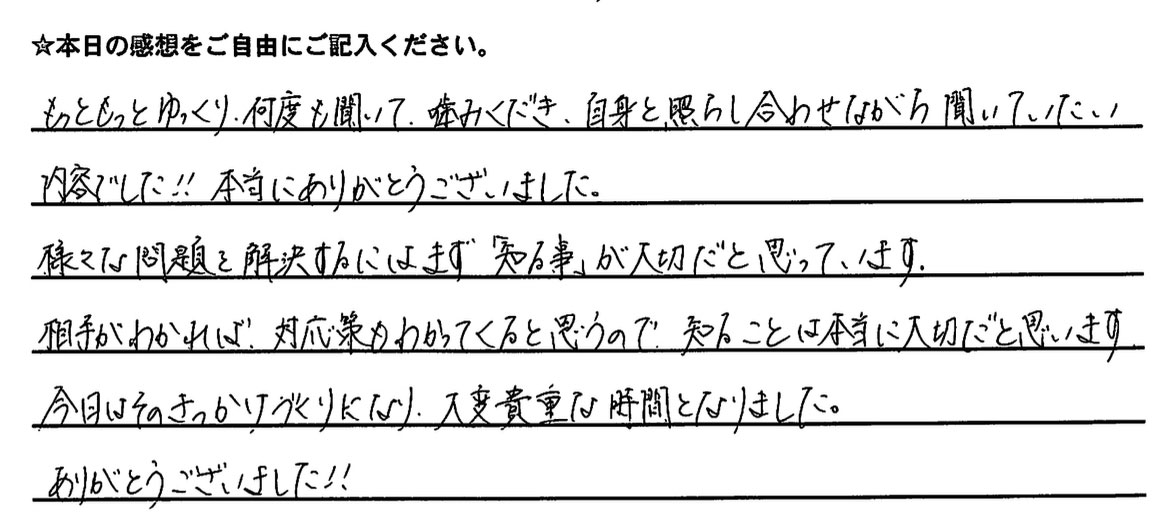 ☆本日の感想をご自由にご記入ください。
もっともっとゆっくり、何度も聞いて、噛みくだき、自身と照らし合わせながら聞いていたい
内容でした!! 本当にありがとうございました。
様々な問題を解決するにはまず「知る事」が大切だと思っています。
相手がわかれば、対応策もわかってくると思うので、知ることは本当に大切だと思います。
今日はそのきっかけづくりになり、大変貴重な時間となりました。
ありがとうございました!!